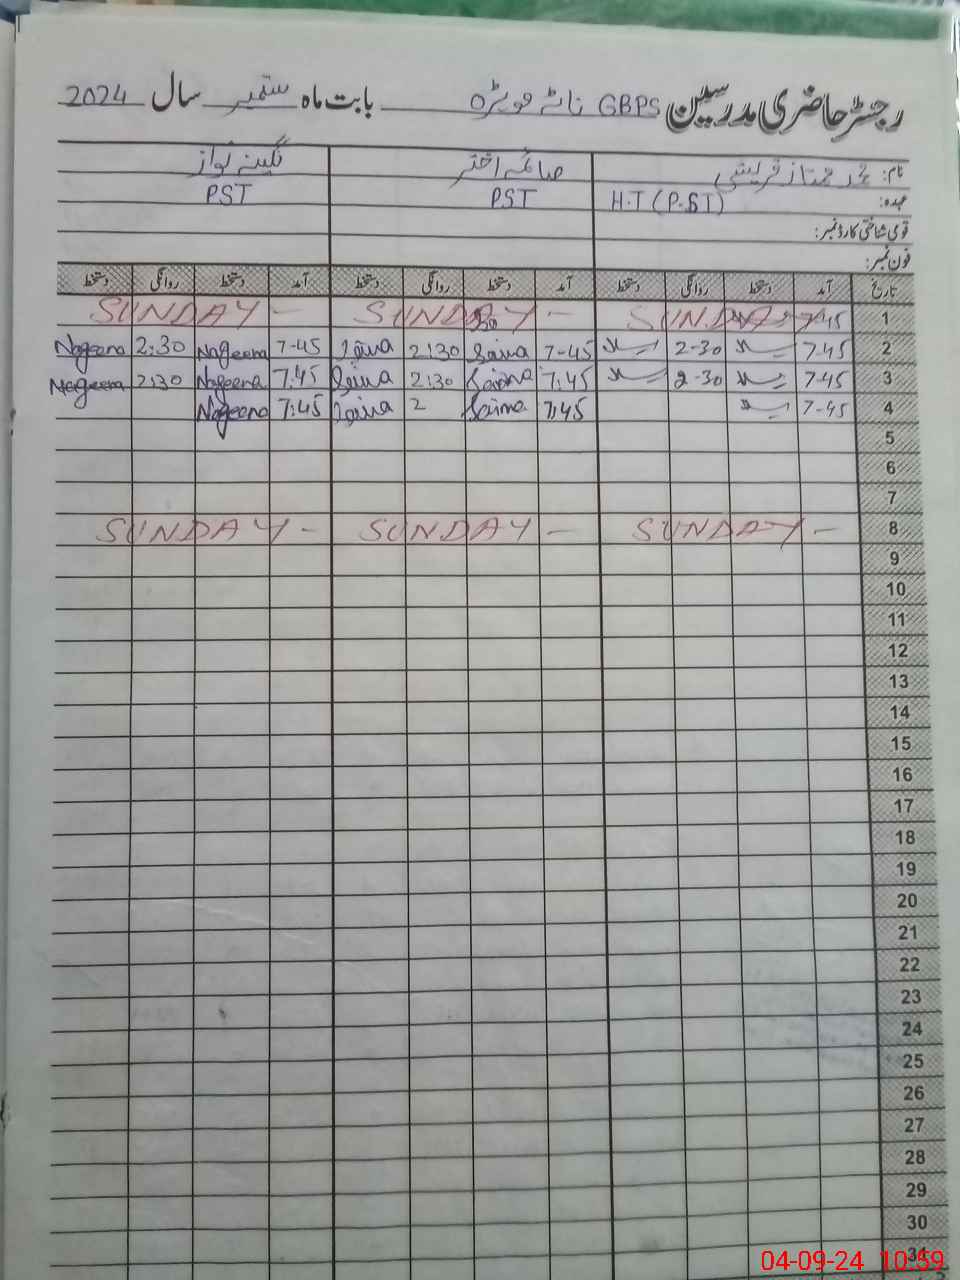 رجسٹر حاضری مدرسین GBPS ناٹے ہویڑہ بابت ماہ ستمبر سال 2024
نام: محمد ممتاز قریشی صائمہ اختر نگینہ نواز
عہدہ: H.T (P.S.T) PST PST
قومی شناختی کارڈ نمبر:
فون نمبر:
تاریخ آمد دستخط روانگی دستخط آمد دستخط روانگی دستخط آمد دستخط روانگی دستخط
1 7-45 SUNDAY - SUNDAY - SUNDAY -
2 7-45 2-30 7-45 Saima 2:30 Saima 7-45 Nageena 2:30 Nageena
3 7-45 2-30 7:45 Saima 2:30 Saima 7:45 Nageena 2:30 Nageena
4 7-45 7:45 Saima 2 Saima 7:45 Nageena
5
6
7
8 SUNDAY - SUNDAY - SUNDAY -
9
10
11
12
13
14
15
16
17
18
19
20
21
22
23
24
25
26
27
28
29
30
31
04-09-24 10:59